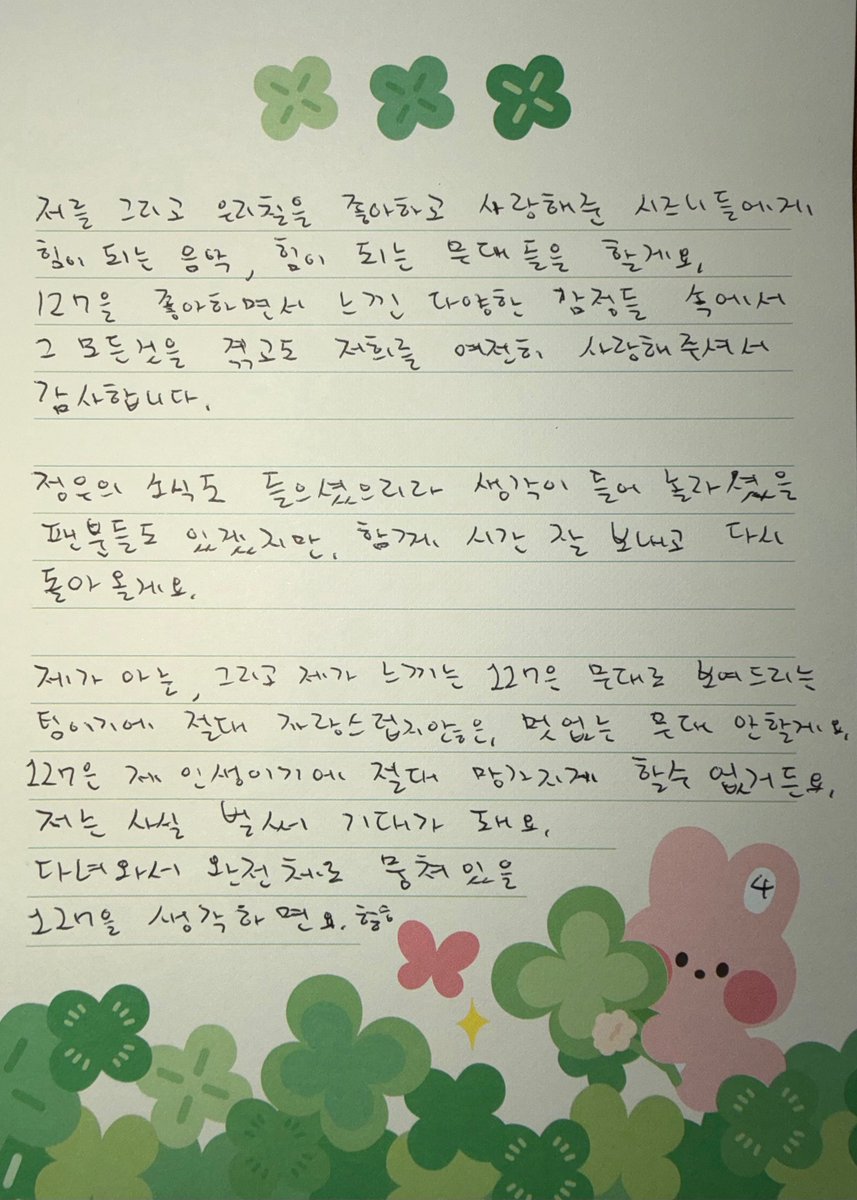 저를 그리고 우리칠을 좋아하고 사랑해준 시즈니들에게
힘이 되는 음악, 힘이 되는 무대들을 할게요.
127을 좋아하면서 느낀 다양한 감정들 속에서
그 모든것을 겪고도 저희를 여전히 사랑해주셔서
감사합니다.
정우의 소식도 들으셨으리라 생각이 들어 놀라셨을
팬분들도 있겠지만, 함께 시간 잘 보내고 다시
돌아 올게요.
제가 아는, 그리고 제가 느끼는 127은 무대로 보여드리는
팀이기에 절대 자랑스럽지않은, 멋없는 무대 안할게요.
127은 제 인생이기에 절대 망가지게 할수 없거든요.
저는 사실 벌써 기대가 돼요.
다녀와서 완전체로 뭉쳐있을
127을 생각하면요. 헣
4